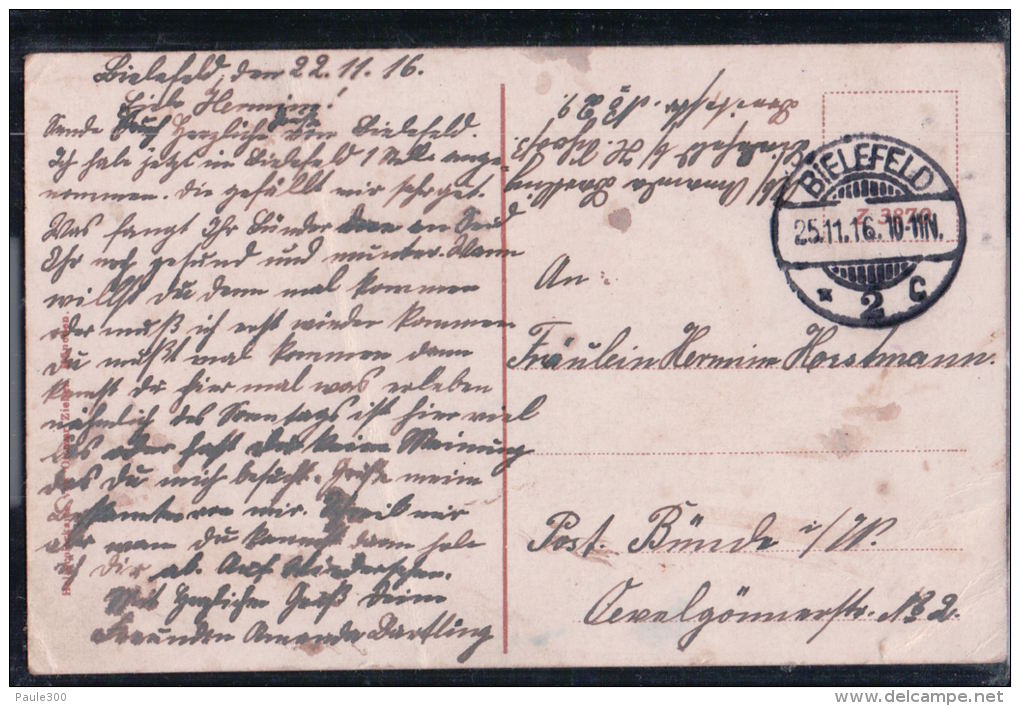 Bielefeld, den 22.11.16.
Liebe Hermine!
Sende Euch Herzliche Grüße von Bielefeld.
Ich habe jetzt in Bielefeld 1 Stelle ange-
nommen. Die gefällt mir sehr gut.
Was fangt Ihr Bünder denn an Seid
Ihr noch gesund und munter. Wann
willst Du denn mal kommen
oder muß ich erst wieder kommen
Du mußt mal kommen dann
kannst Du hier mal was erleben
nähmlich des Sonntags ist hier viel
los oder hast Du keine Meinung
das Du mich besuchst. Grüße meine
Bekannten von mir. Schreib mir
wann Du kommst dann hole
ich Dir ab. Auf Wiedersehen.
Mit Herzlichen Gruß Deine
Freundin Amanda Dartling
Abs. Amanda Dartling
Bielefeld b/ H.
BIELEFELD
25.11.16. 10-11N.
* 2 C
Z 3870
An
Fräulein Hermine Horstmann.
Post Bünde i/W.
Oevelgönnerstr. No 2.
Paule300
www.delcampe.net